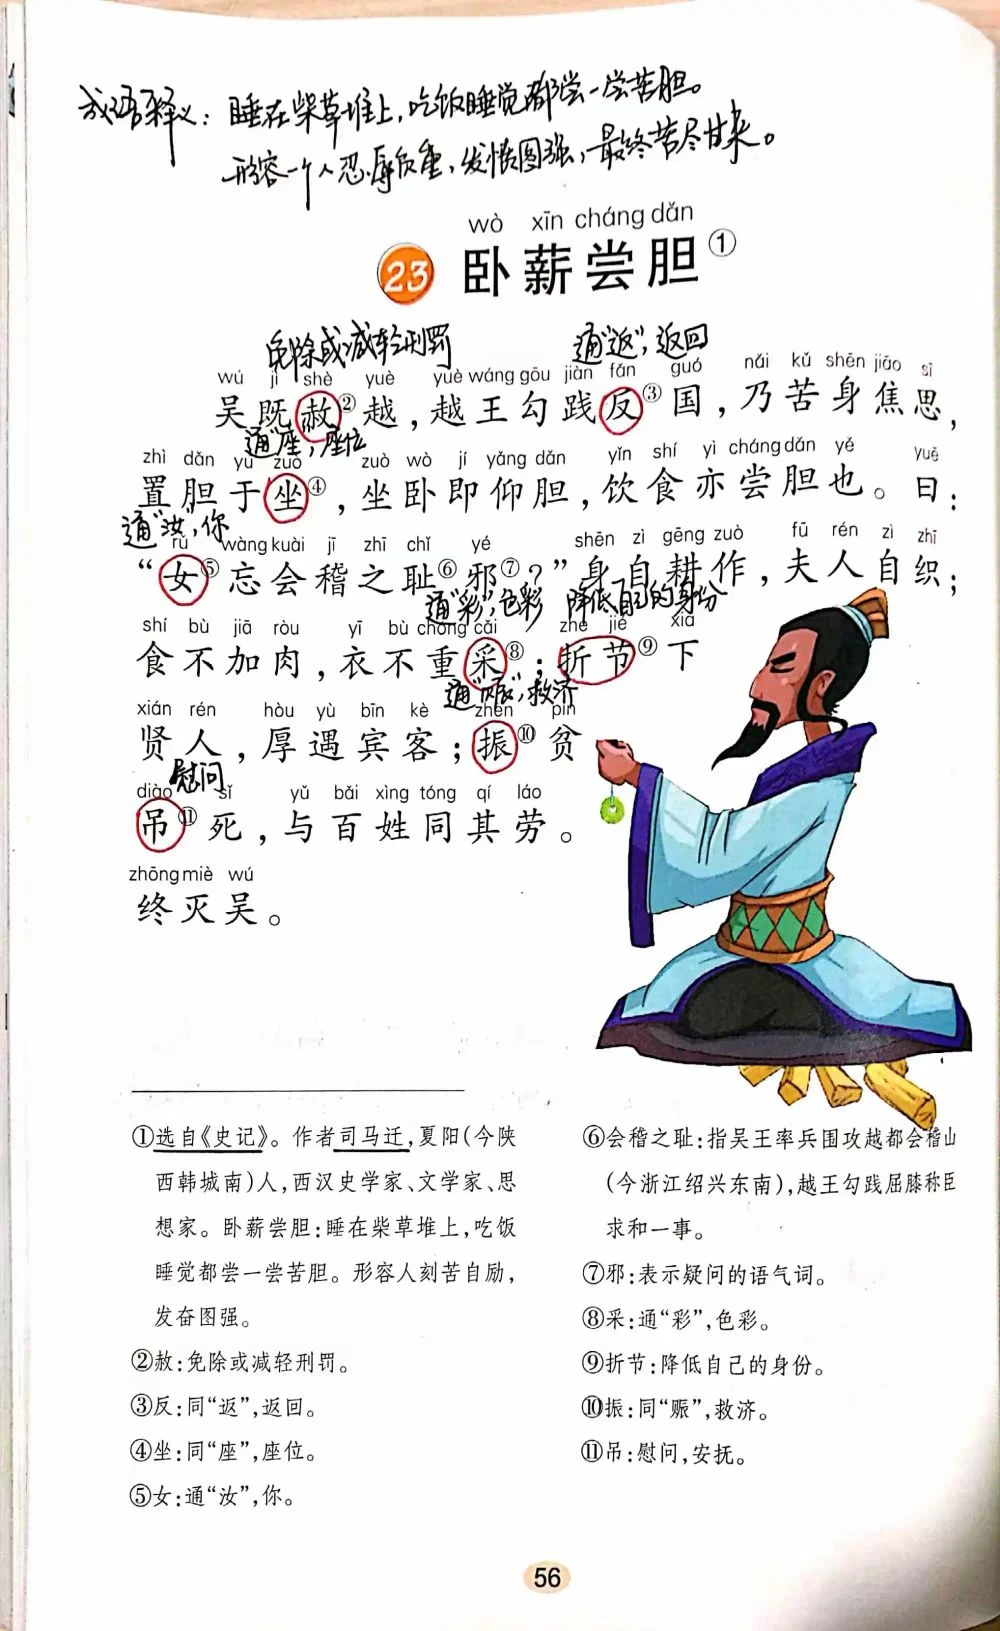 成语释义：睡在柴草堆上，吃饭睡觉都尝一尝苦胆。
形容一个人忍辱负重，发愤图强，最终苦尽甘来。
wò xīn cháng dǎn
23 卧薪尝胆①
免除或减轻刑罚 通“返”，返回
wú jì shè yuè yuè wáng gōu jiàn fǎn guó nǎi kǔ shēn jiāo sī
吴既赦②越，越王勾践反③国，乃苦身焦思，
通“座”，座位
zhì dǎn yú zuò zuò wò jí yǎng dǎn yǐn shí yì cháng dǎn yě yuē
置胆于坐④，坐卧即仰胆，饮食亦尝胆也。曰：
通“汝”，你
rǔ wàng kuài jī zhī chǐ yé shēn zì gēng zuò fū rén zì zhī
“女⑤忘会稽之耻⑥邪⑦？”身自耕作，夫人自织；
通“彩”，色彩 降低自己的身份
shí bù jiā ròu yī bù chóng cǎi zhé jié xià
食不加肉，衣不重采⑧；折节⑨下
通“赈”，救济
xián rén hòu yù bīn kè zhèn pín
贤人，厚遇宾客；振⑩贫
慰问
diào sǐ yǔ bǎi xìng tóng qí láo
吊⑪死，与百姓同其劳。
zhōng miè wú
终灭吴。
①选自《史记》。作者司马迁，夏阳（今陕
西韩城南）人，西汉史学家、文学家、思
想家。卧薪尝胆：睡在柴草堆上，吃饭
睡觉都尝一尝苦胆。形容人刻苦自励，
发奋图强。
②赦：免除或减轻刑罚。
③反：同“返”，返回。
④坐：同“座”，座位。
⑤女：通“汝”，你。
⑥会稽之耻：指吴王率兵围攻越都会稽山
（今浙江绍兴东南），越王勾践屈膝称臣
求和一事。
⑦邪：表示疑问的语气词。
⑧采：通“彩”，色彩。
⑨折节：降低自己的身份。
⑩振：同“赈”，救济。
⑪吊：慰问，安抚。
56